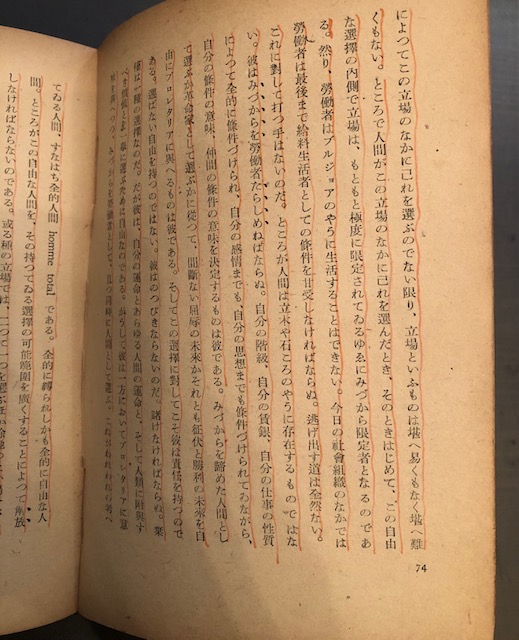 によつてこの立場のなかに己れを選ぶのでない限り、立場といふものは堪へ易くもなく堪へ難
くもない。ところで人間がこの立場のなかに己れを選んだとき、そのときはじめて、この自由
な選擇の内側で立場は、もともと極度に限定されてゐるゆゑにみづから限定者となるのであ
る。然り、勞働者はブルジョアのやうに生活することはできない。今日の社會組織のなかでは
勞働者は最後まで給料生活者としての條件を甘受しなければならぬ。逃げ出す道は全然ない。
これに對して打つ手はないのだ。ところが人間は立木や石ころのやうに存在するものではな
い。彼はみづからを勞働者たらしめねばならぬ。自分の階級、自分の賃銀、自分の仕事の性質
によつて全的に條件づけられ、自分の感情までも、自分の思想までも條件づけられてゐながら、
自分の條件の意味、仲間の條件の意味を決定するものは彼である。みづからを諦めた人間とし
て選ぶか革命家として選ぶかに從つて、間斷ない屈辱の未來かそれとも征伏と勝利の未來を自
由にプロレタリアに與へるものは彼である。そしてこの選擇に對してこそ彼は責任を持つので
ある。選ばない自由を持つのではない。彼はのつぴきならないのだ。賭けなければならぬ。棄
權は一種の選擇なのだ。だが彼は、自分の運命とあらゆる人間の運命と、そして人類に
べき價値とを一擧に選ぶために自由なのである。かうして彼は一方においてプロレタリアに意
みづからを勞働者として、且つ同時に人間として選ぶ。これはわれわれの考へ
てゐる人間、すなはち全的人間 homme total である。全的に縛られしかも全的に自由な人
間。ところがこの自由な人間を、その持つてゐる選擇の可能範圍を廣くすることによつて解放
しなければならないのである。或る種の立場では、二つに一つを選ぶ
74